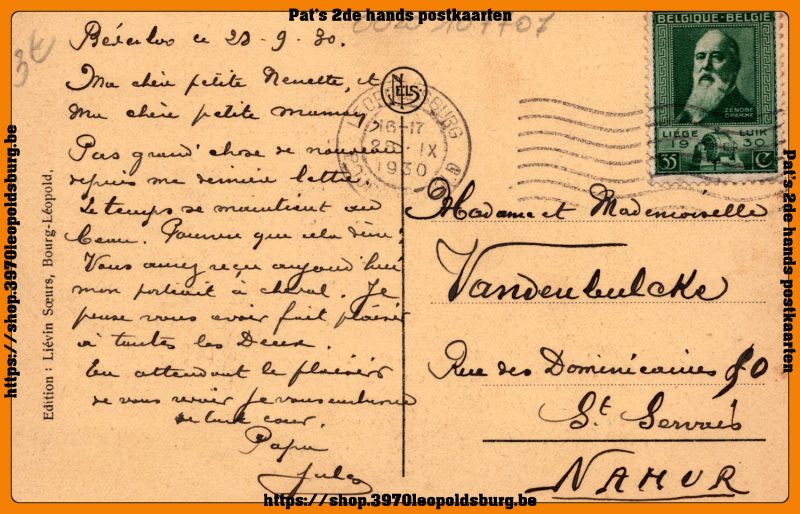 Pat's 2de hands postkaarten
3€
107707
Béverloo ce 28-9-30.
Ma chère petite Nenette, et
Ma chère petite maman
Pas grand'chose de nouveau
depuis ma dernière lettre
Le temps se maintient au
beau. Pourvu que cela dure!
Vous aurez reçu aujourd'hui
mon portrait à cheval. Je
pense vous avoir fait plaisir
à toutes les Deux.
En attendant le plaisir
de vous revoir je vous embrasse
de tout cœur.
Papa
Jules
Edition : Liévin Sœurs, Bourg-Léopold.
NELS
LEOPOLDSBURG
16-17
28 IX
1930
BELGIQUE-BELGIË
ZÉNOBE
GRAMME
LIÉGE LUIK
19 30
35 C
Madame et Mademoiselle
Vandenbulcke
Rue des Dominicaines 50
St Servais
NAMUR
https://shop.3970leopoldsburg.be
Pat's 2de hands postkaarten
https://shop.3970leopoldsburg.be